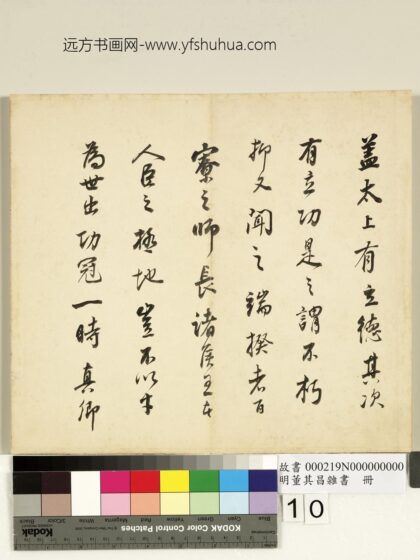 远方书画网-www.yfshuhua.com
盖太上有立德其次
有立功是之謂不朽
抑又聞之端揆者百
寮之師長諸侯王者
人臣之極地豈不以才
為世出功冠一時真卿
故書 000219N000000000
明董其昌雜書 冊
10
KODAK Color Control Patches
Blue
Cyan
Green
Yellow
Red
Magenta
White
3/Color
Black